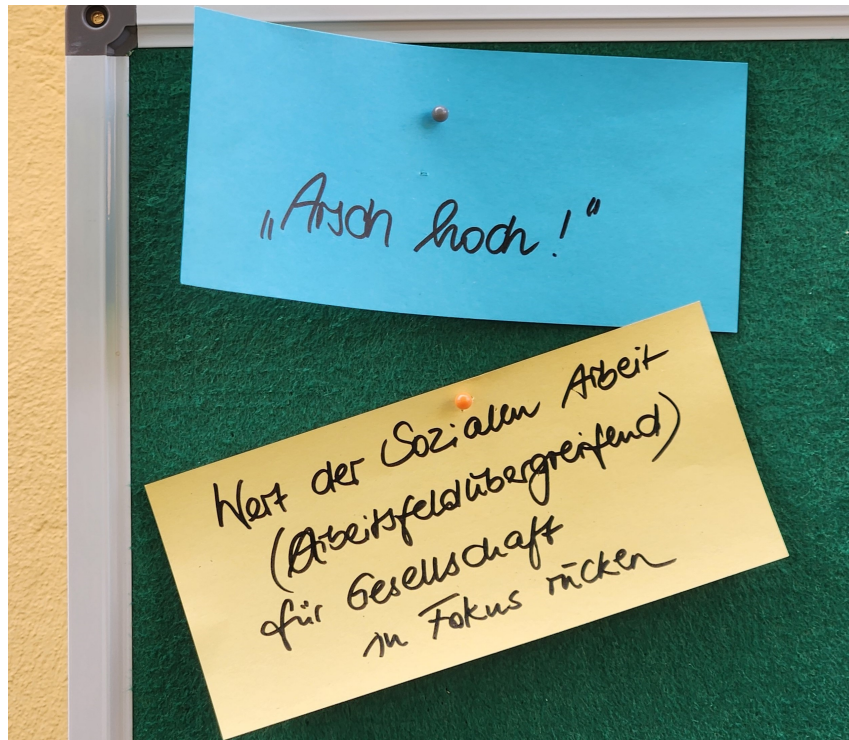 „Arsch hoch!“
Wert der Sozialen Arbeit
(Arbeitsfeldübergreifend)
für Gesellschaft
in Fokus rücken